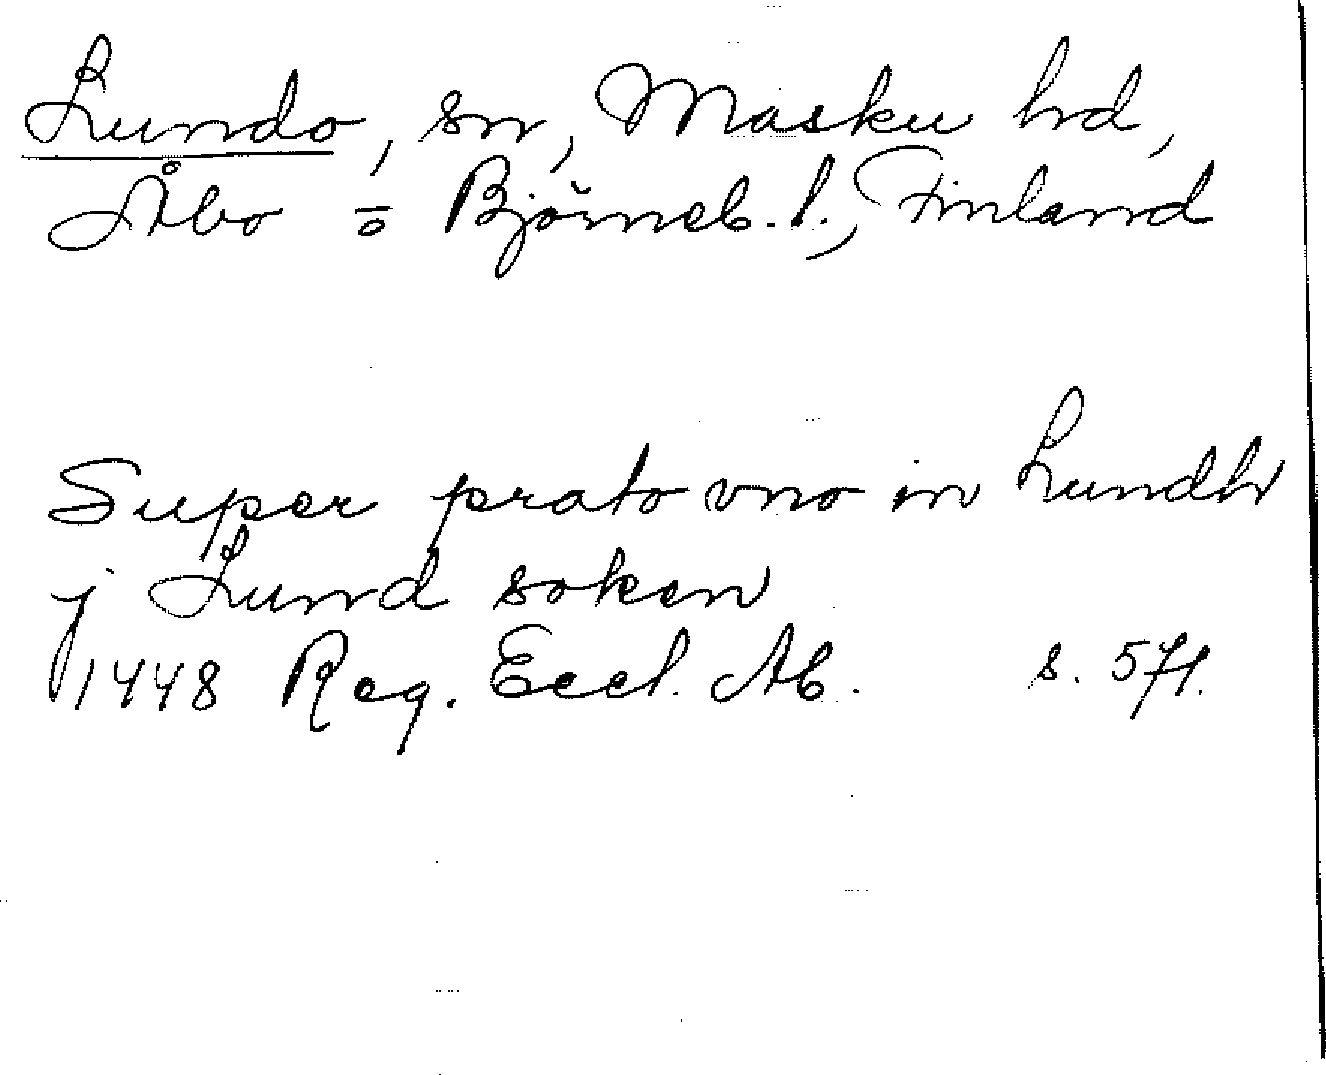 Lundo, sn, Masku hd,
Åbo o Björneb. l., Finland
Super prato vno in Lundh
j Lund soken
1448 Reg. Eccl. Ab. s. 571.